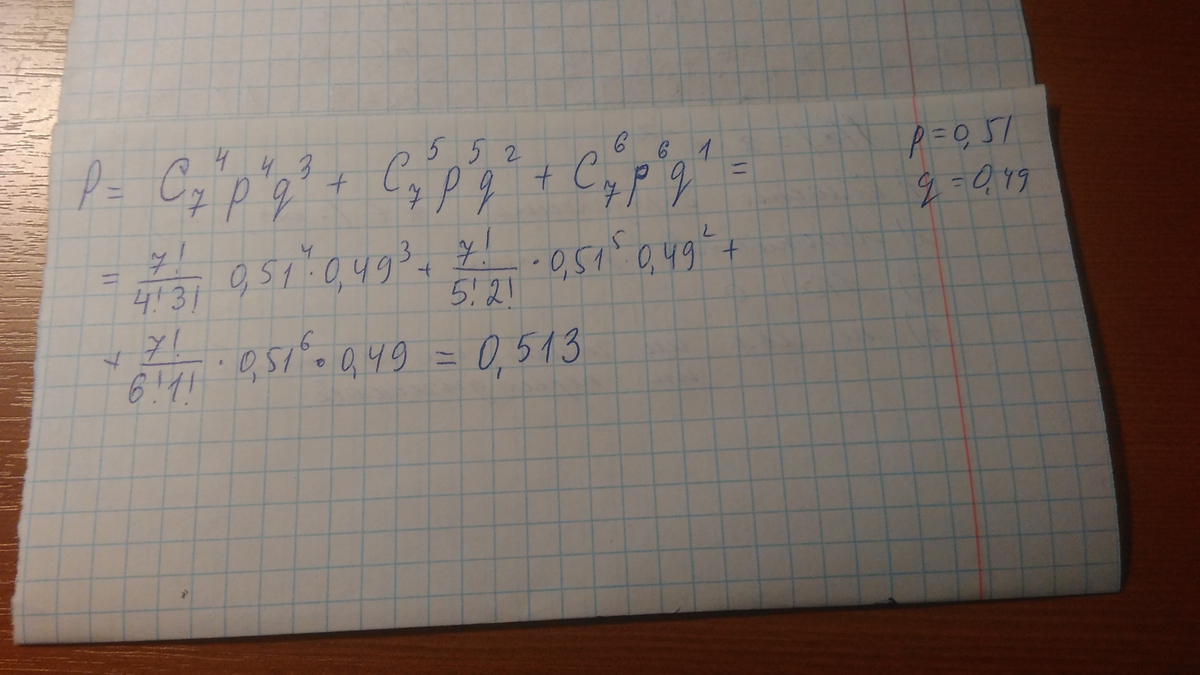 P = C₇⁴ p⁴ q³ + C₇⁵ p⁵ q² + C₇⁶ p⁶ q¹ =
p = 0,51
q = 0,49
= 7!/4!3! 0,51⁴ · 0,49³ + 7!/5!2! · 0,51⁵ · 0,49² +
+ 7!/6!1! · 0,51⁶ · 0,49 = 0,513